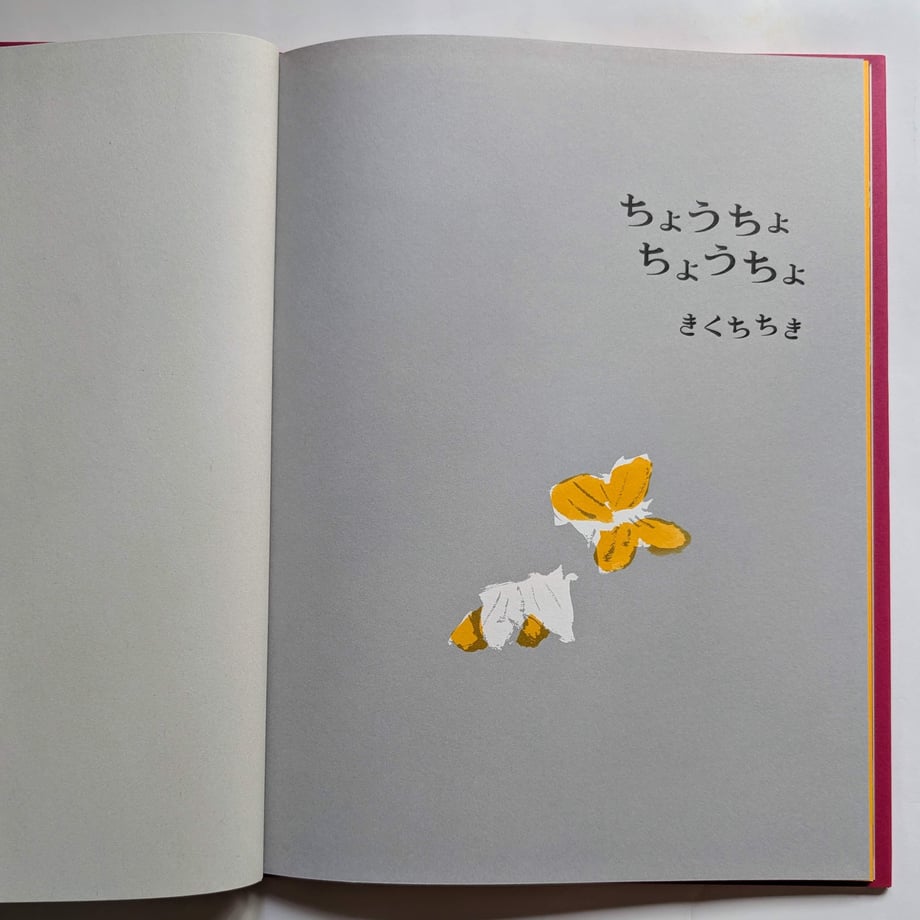 ちょうちょ
ちょうちょ
きくちちき